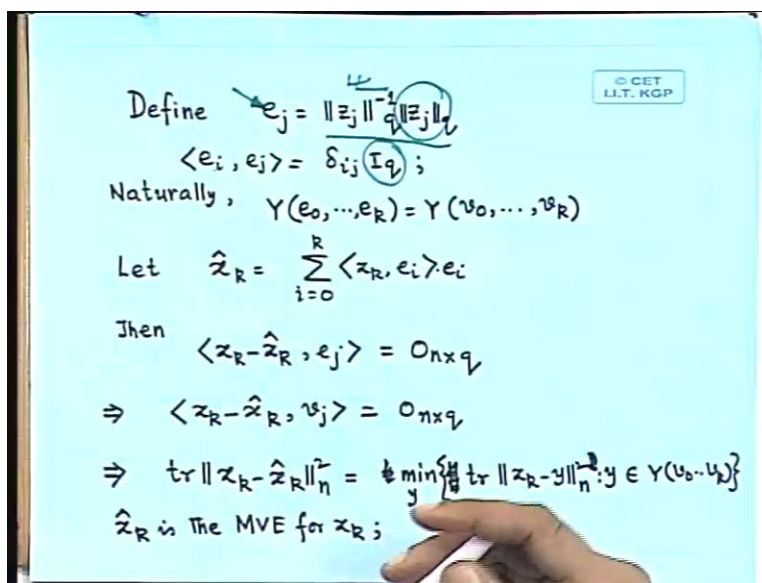 © CET
I.I.T. KGP
Define e_j = ||z_j||_q^{-1} ||z_j||_q
<e_i, e_j> = δ_{ij} I_q ;
Naturally, Y(e_0, ..., e_k) = Y(v_0, ..., v_k)
Let x̂_k = Σ_{i=0}^{k} <x_k, e_i> e_i
Then <x_k - x̂_k, e_j> = 0_{n×q}
⇒ <x_k - x̂_k, v_j> = 0_{n×q}
⇒ tr ||x_k - x̂_k||_n^2 = min_y { tr ||x_k - y||_n^2 : y ∈ Y(v_0..v_k)}
x̂_k is the MVE for x_k ;